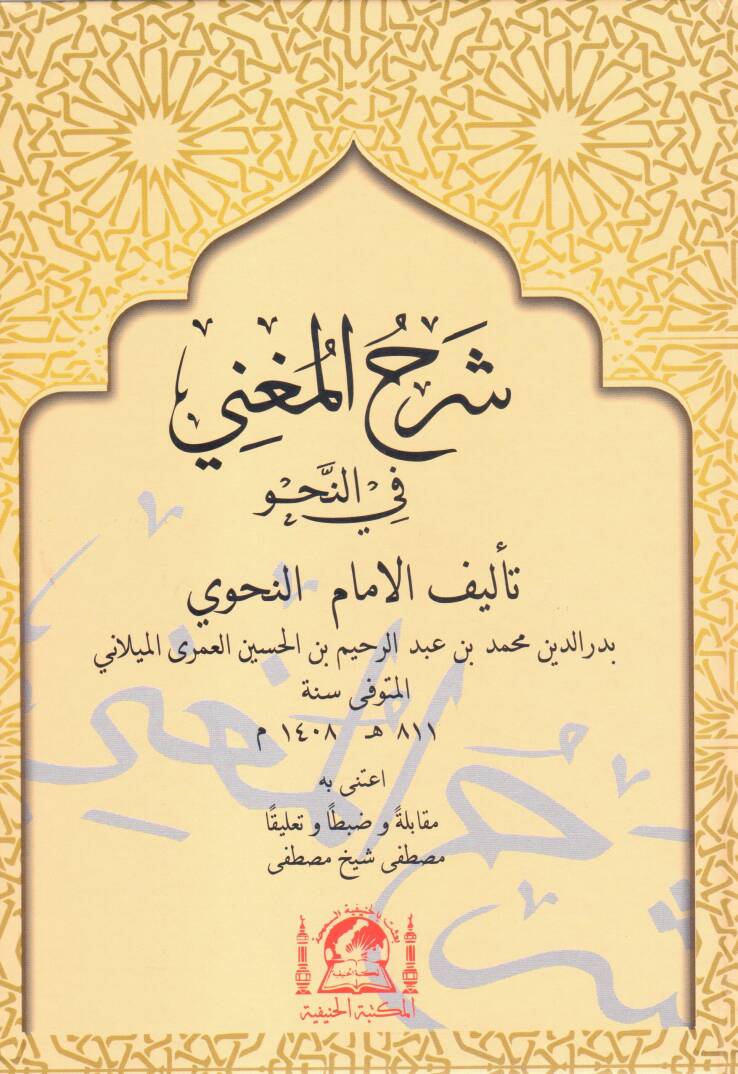 شَرْحُ المُغْنِي
فِي النَّحو
تأليف الامام النحوي
بدرالدين محمد بن عبد الرحيم بن الحسين العمرى الميلاني
المتوفى سنة
٨١١ هـ ١٤٠٨ م
اعتنى به
مقابلةً و ضبطًا و تعليقًا
مصطفى شيخ مصطفى
بعثت بالحنيفية السمحة
المكتبة الحنيفية